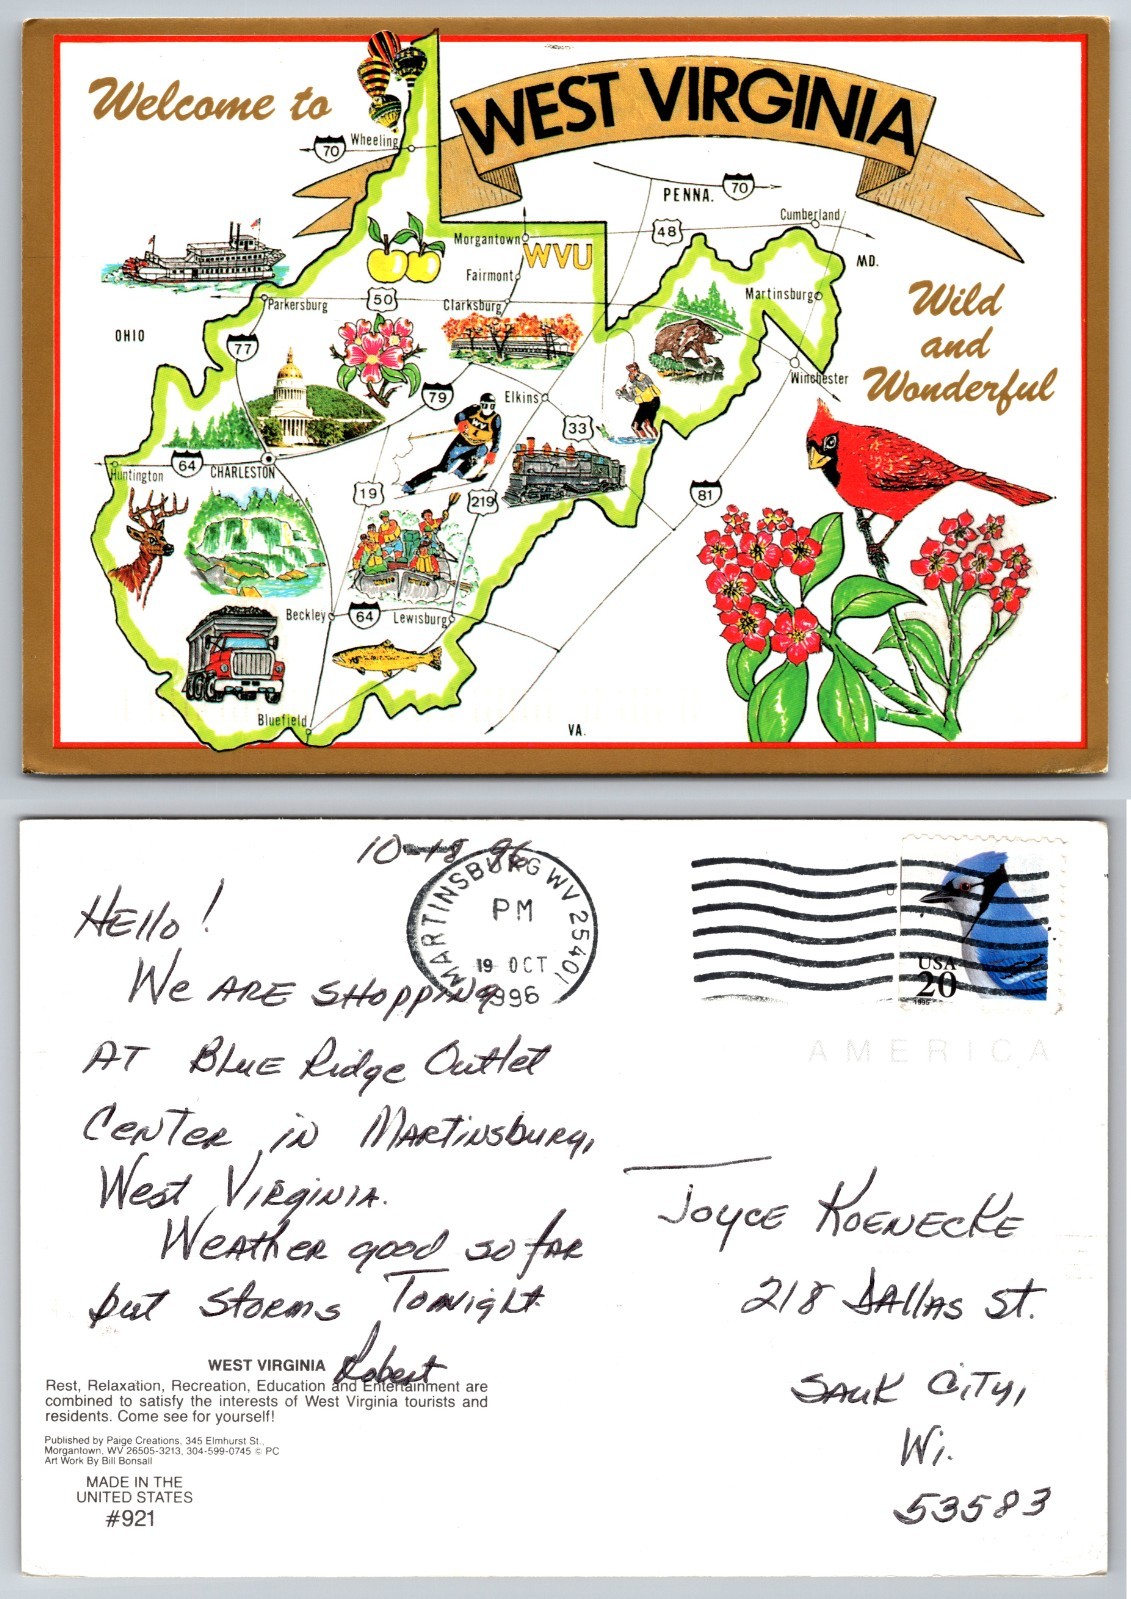 Welcome to
WEST VIRGINIA
70
Wheeling
PENNA.
70
Cumberland
48
MD.
Morgantown
WVU
Fairmont
Martinsburg
Parkersburg
50
Clarksburg
OHIO
77
Wild
and
Wonderful
Winchester
79
Elkins
33
Huntington
64
CHARLESTON
19
219
81
Beckley
64
Lewisburg
Bluefield
VA.
10-18 96
MARTINSBURG WV 25401
PM
19 OCT
1996
USA
20
1995
AMERICA
Hello!
We are shopping
at Blue Ridge Outlet
Center in Martinsburg,
West Virginia.
Weather good so far
but storms Tonight.
Robert
Joyce Koenecke
218 Dallas St.
Sauk City,
Wi.
53583
WEST VIRGINIA
Rest, Relaxation, Recreation, Education and Entertainment are
combined to satisfy the interests of West Virginia tourists and
residents. Come see for yourself!
Published by Paige Creations, 345 Elmhurst St.,
Morgantown, WV 26505-3213, 304-599-0745 © PC
Art Work By Bill Bonsall
MADE IN THE
UNITED STATES
#921